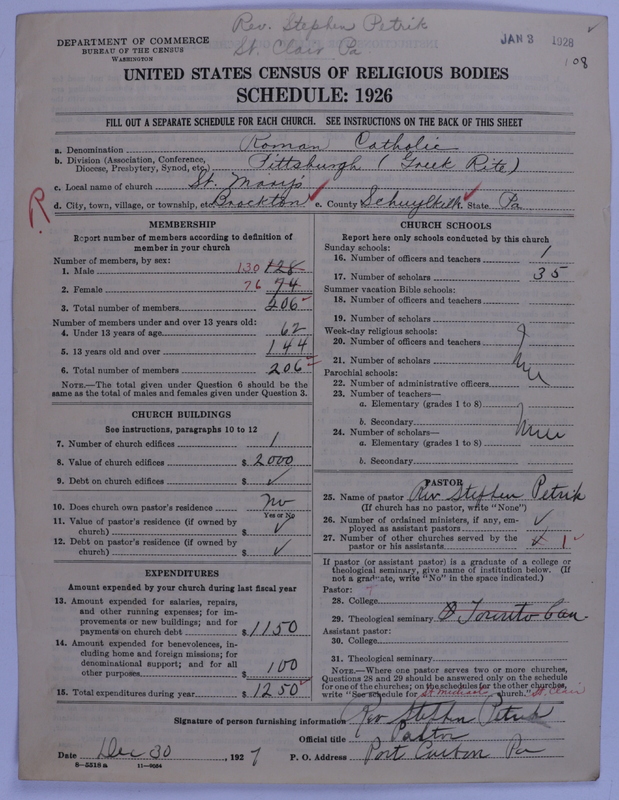 Rev. Stephen Petrik
St. Clair Pa
JAN 3 1928
108
DEPARTMENT OF COMMERCE
BUREAU OF THE CENSUS
WASHINGTON
UNITED STATES CENSUS OF RELIGIOUS BODIES
SCHEDULE: 1926
FILL OUT A SEPARATE SCHEDULE FOR EACH CHURCH. SEE INSTRUCTIONS ON THE BACK OF THIS SHEET
a. Denomination Roman Catholic
b. Division (Association, Conference, Diocese, Presbytery, Synod, etc.) Pittsburgh (Greek Rite)
c. Local name of church St. Mary's
R d. City, town, village, or township, etc. Brockton e. County Schuylkill State Pa
MEMBERSHIP
Report number of members according to definition of
member in your church
Number of members, by sex:
1. Male 130 128
2. Female 76 74
3. Total number of members 206
Number of members under and over 13 years old:
4. Under 13 years of age 62
5. 13 years old and over 144
6. Total number of members 206
NOTE.—The total given under Question 6 should be
same as the total of males and females given under Question 3.
CHURCH BUILDINGS
See instructions, paragraphs 10 to 12
7. Number of church edifices 1
8. Value of church edifices $ 2000
9. Debt on church edifices $ ✓
10. Does church own pastor's residence? no
Yes or No
11. Value of pastor's residence (if owned by
church) $ ✓
12. Debt on pastor's residence (if owned by
church) $ ✓
EXPENDITURES
Amount expended by your church during last fiscal year
13. Amount expended for salaries, repairs,
and other running expenses; for im-
provements or new buildings; and for
payments on church debt $ 1150
14. Amount expended for benevolences, in-
cluding home and foreign missions; for
denominational support; and for all
other purposes 100
15. Total expenditures during year $ 1250
CHURCH SCHOOLS
Report here only schools conducted by this church
Sunday schools:
16. Number of officers and teachers 1
17. Number of scholars 35
Summer vacation Bible schools:
18. Number of officers and teachers
19. Number of scholars
Week-day religious schools:
20. Number of officers and teachers
21. Number of scholars
Parochial schools:
22. Number of administrative officers
23. Number of teachers—
a. Elementary (grades 1 to 8)
b. Secondary
24. Number of scholars—
a. Elementary (grades 1 to 8)
b. Secondary
PASTOR
25. Name of pastor Rev Stephen Petrik
(If church has no pastor, write "None")
26. Number of ordained ministers, if any, em-
ployed as assistant pastors ✓
27. Number of other churches served by the
pastor or his assistants 1
If pastor (or assistant pastor) is a graduate of a college or
theological seminary, give name of institution below. (If
not a graduate, write "No" in the space indicated.)
Pastor:
28. College
29. Theological seminary Toronto Can.
Assistant pastor:
30. College
31. Theological seminary
NOTE.—Where one pastor serves two or more churches,
Questions 28 and 29 should be answered only on the schedule
for one of the churches; on the schedules for the other churches,
write "See schedule for St Michael church." St. Clair
Signature of person furnishing information Rev Stephen Petrik
Official title Pastor
Date Dec 30, 1927 P. O. Address Port Carbon Pa
8—5518a 11—9084